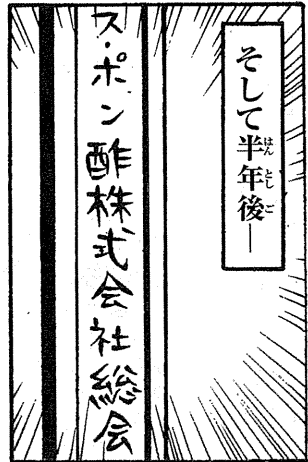 そして半年後―
ス・ポン酢株式会社総会